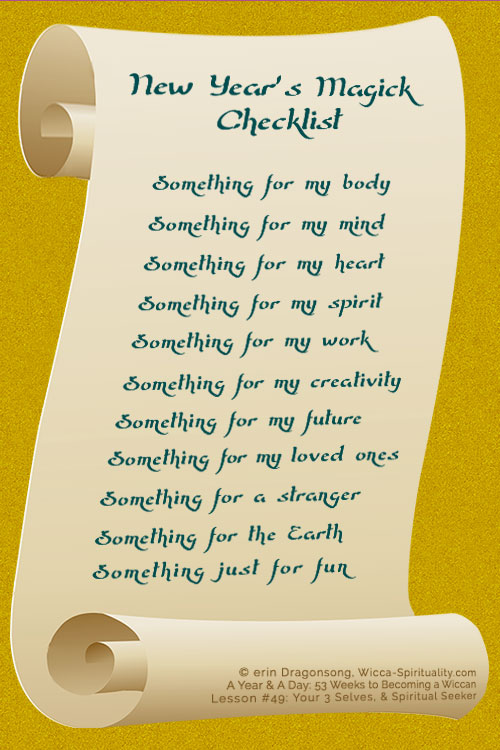 New Year's Magick
Checklist
Something for my body
Something for my mind
Something for my heart
Something for my spirit
Something for my work
Something for my creativity
Something for my future
Something for my loved ones
Something for a stranger
Something for the Earth
Something just for fun
© erin Dragonsong, Wicca-Spirituality.com
A Year & A Day: 53 Weeks to Becoming a Wiccan
Lesson #49: Your 3 Selves, & Spiritual Seeker